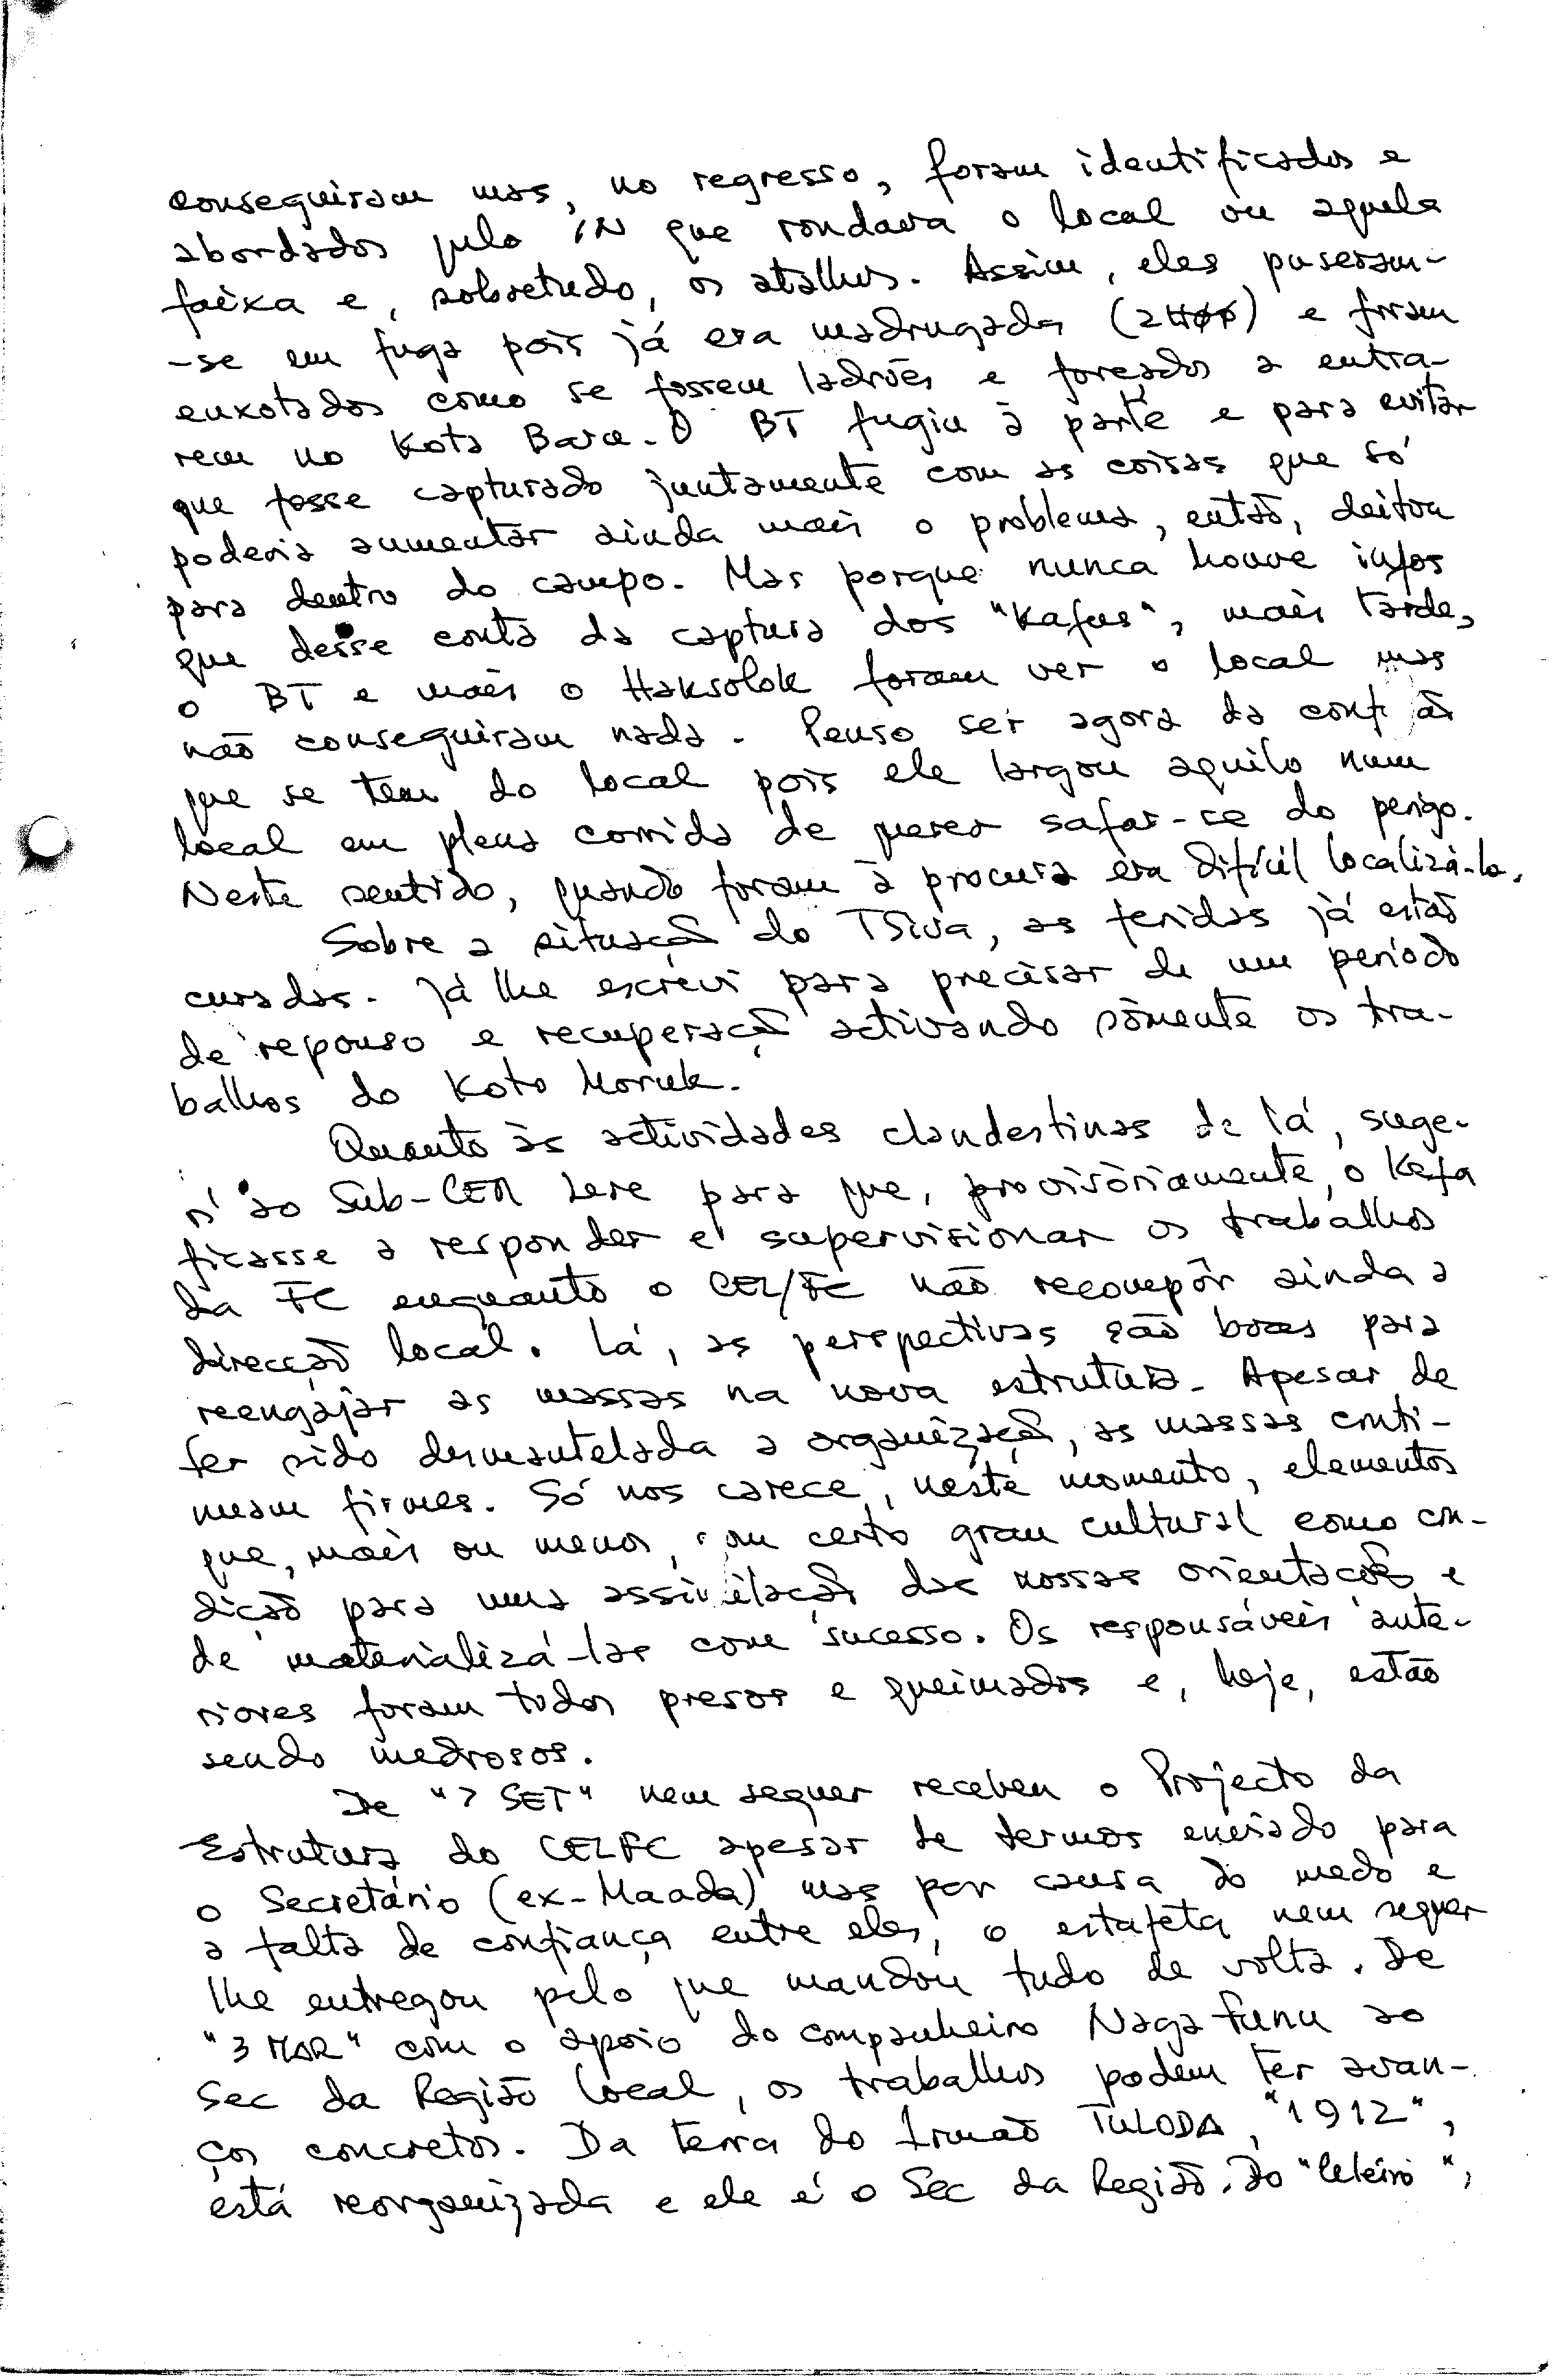 conseguiram mas, no regresso, foram identificados e
abordados pelo IN que rondava o local ou aquela
faixa e, sobretudo, os atalhos. Assim, eles puseram-
-se em fuga pois já era madrugada (2H00) e foram
enxotados como se fossem ladrões e forçados a entra-
rem no Kota Baru. O BT fugiu à parte e para evitar
que fosse capturado juntamente com as coisas que só
poderia aumentar ainda mais o problema, então, deitou
para dentro do campo. Mas porque nunca houve infos
que desse conta da captura dos "Kafus", mais tarde,
o BT e mais o Haksolok foram ver o local mas
não conseguiram nada. Penso ser agora da conf ãs
que se tem do local pois ele largou aquilo num
local em plena corrida de querer safar-se do perigo.
Neste sentido, quando foram à procura era difícil localizá-lo.
Sobre a situação do TSiva, as feridas já estão
curadas. Já lhe escrevi para precisar de um período
de repouso e recuperação activando sòmente os tra-
balhos do Koto Moruk.
Quanto às actividades clandestinas de lá, suge-
ri ao Sub-CER Lere para que, provisòriamente, o Kefa
ficasse a responder e supervisionar os trabalhos
da FC enquanto o CEL/FC não recompôr ainda a
direcção local. Lá, as perspectivas são boas para
reengajar as massas na nova estrutura. Apesar de
ter sido desmantelada a organização, as massas conti-
nuam firmes. Só nos carece, neste momento, elementos
que, mais ou menos, um certo grau cultural como con-
dição para uma assimilação das nossas orientações e
de materializá-las com sucesso. Os responsáveis ante-
riores foram todos presos e queimados e, hoje, estão
sendo medrosos.
De "7 SET" nem sequer recebeu o Projecto da
Estrutura do CELFC apesar de termos enviado para
o Secretário (ex-Maada) mas por causa do medo e
a falta de confiança entre eles, o estafeta nem sequer
lhe entregou pelo que mandou tudo de volta. De
"3 MAR" com o apoio do companheiro Naga Funu ao
Sec da Região local, os trabalhos podem ter avan-
ços concretos. Da terra do Irmão TULODA, "1912",
está reorganizada e ele é o Sec da Região. Do "Leleiro",